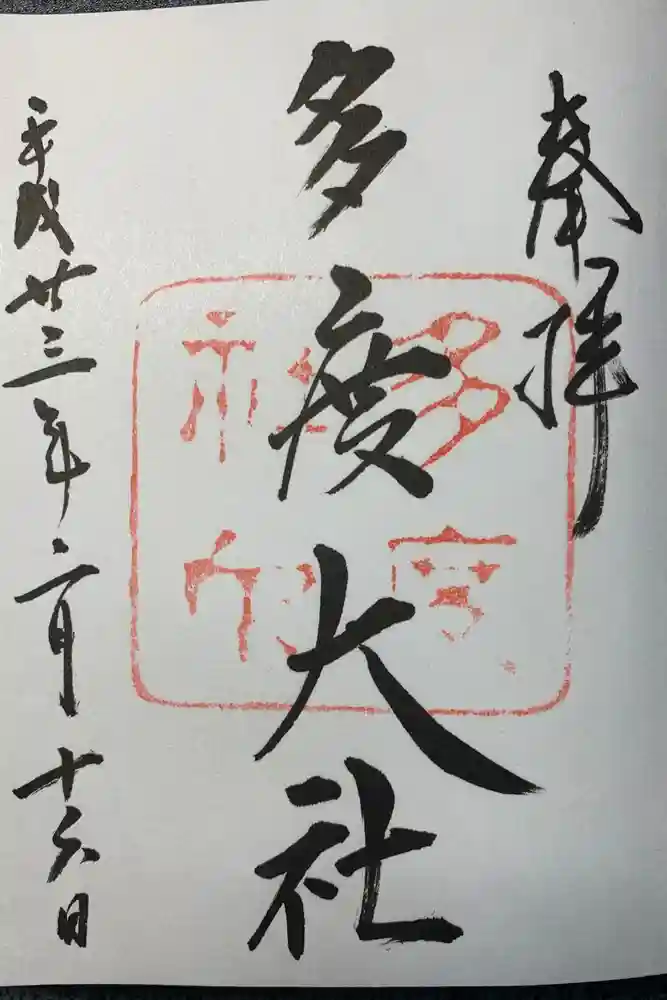 奉拝
多度大社
平成廿三年二月十六日
多度
社印